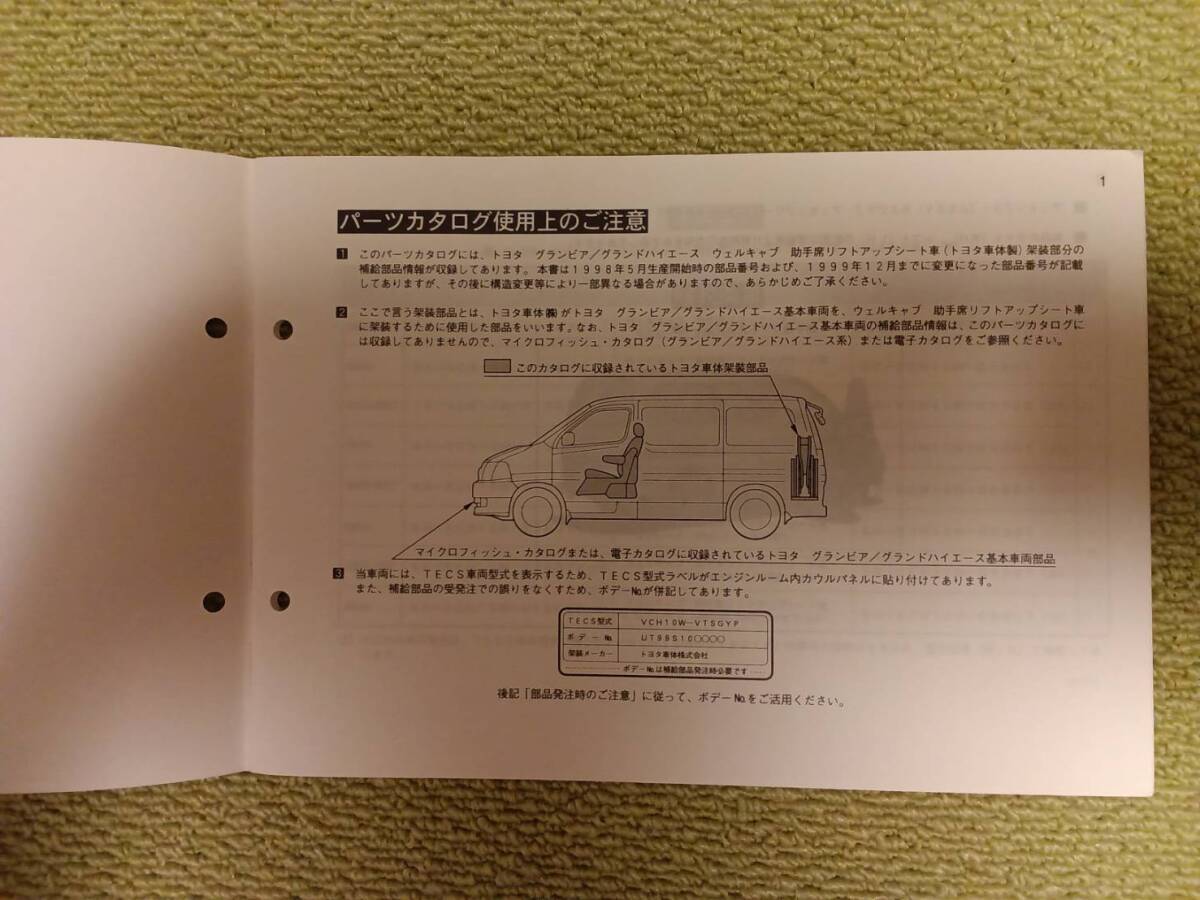 1
パーツカタログ使用上のご注意
1 このパーツカタログには、トヨタ グランビア／グランドハイエース ウェルキャブ 助手席リフトアップシート車（トヨタ車体製）架装部分の
補給部品情報が収録してあります。本書は１９９８年５月生産開始時の部品番号および、１９９９年１２月までに変更になった部品番号が記載
してありますが、その後に構造変更等により一部異なる場合がありますので、あらかじめご了承ください。
2 ここで言う架装部品とは、トヨタ車体㈱がトヨタ グランビア／グランドハイエース基本車両を、ウェルキャブ 助手席リフトアップシート車
に架装するために使用した部品をいいます。なお、トヨタ グランビア／グランドハイエース基本車両の補給部品情報は、このパーツカタログに
は収録してありませんので、マイクロフィッシュ・カタログ（グランビア／グランドハイエース系）または電子カタログをご参照ください。
このカタログに収録されているトヨタ車体架装部品
マイクロフィッシュ・カタログまたは、電子カタログに収録されているトヨタ グランビア／グランドハイエース基本車両部品
3 当車両には、ＴＥＣＳ車両型式を表示するため、ＴＥＣＳ型式ラベルがエンジンルーム内カウルパネルに貼り付けてあります。
また、補給部品の受発注での誤りをなくすため、ボデー№が併記してあります。
ＴＥＣＳ型式 ＶＣＨ１０Ｗ－ＶＴＳＧＹＰ
ボデー№ ＵＴ９８Ｓ１０○○○○
架装メーカー トヨタ車体株式会社
ボデー№は補給部品発注時必要です
後記「部品発注時のご注意」に従って、ボデー№をご活用ください。